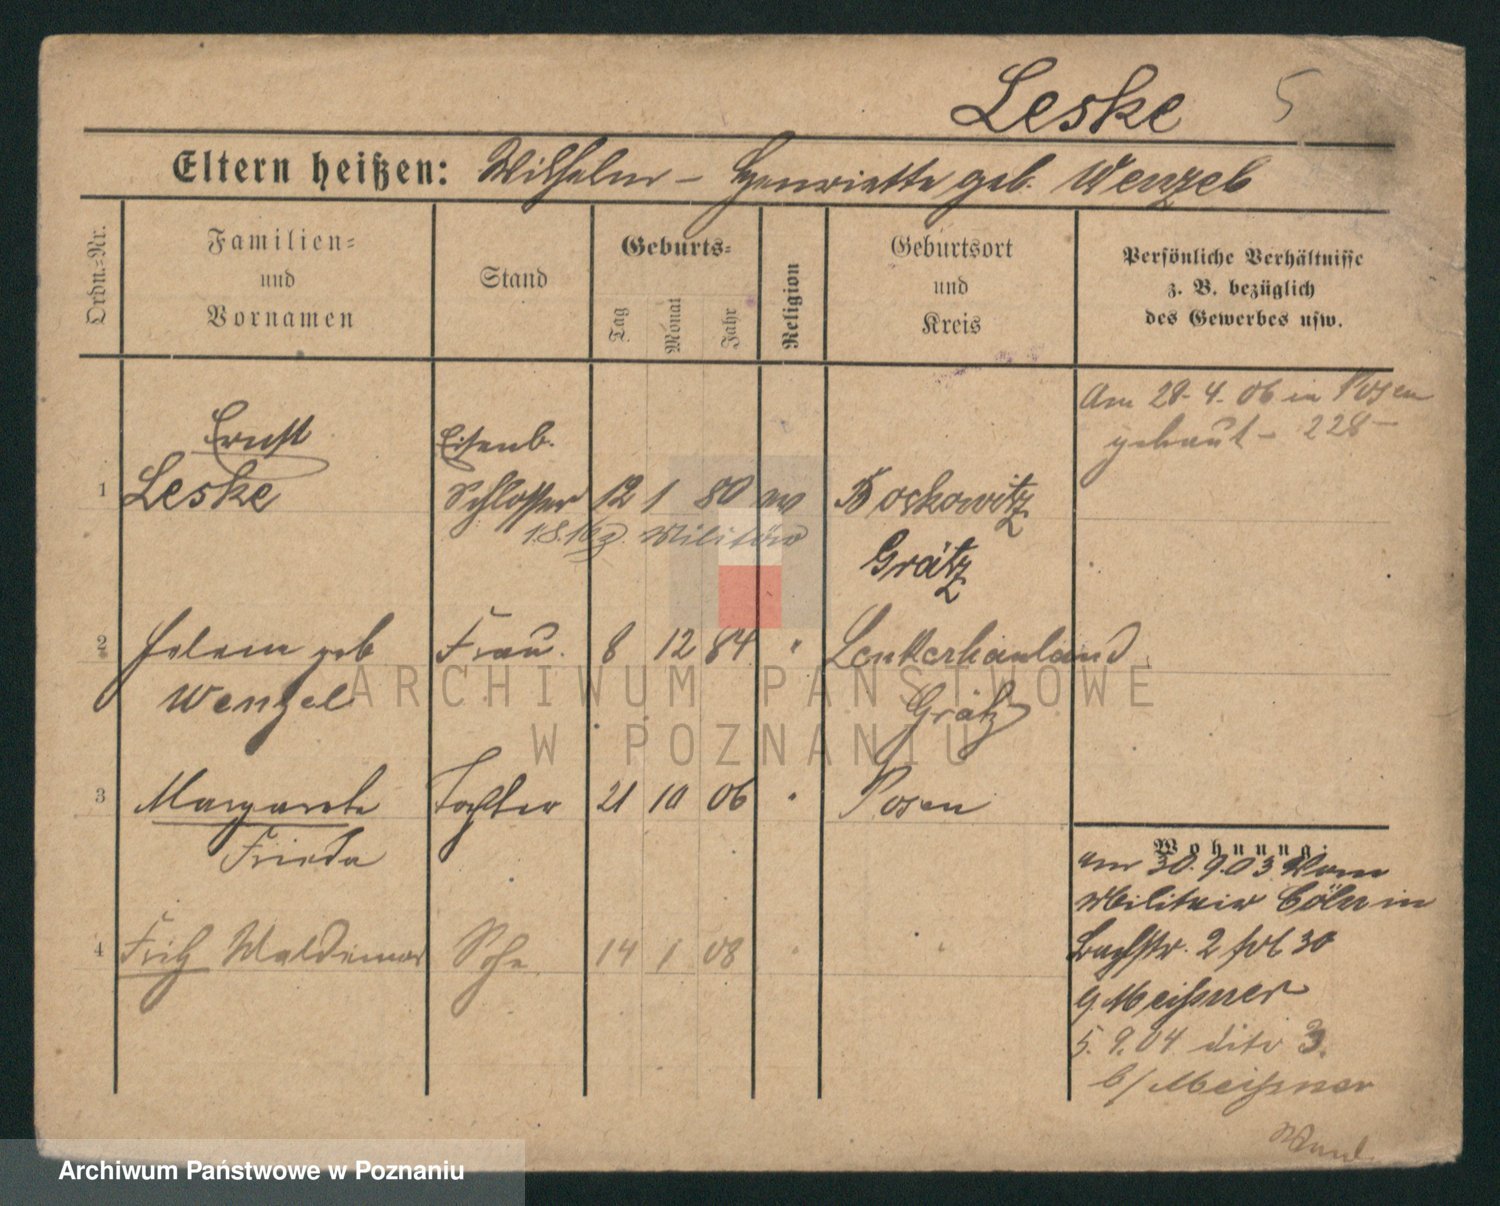 Leske 5
Eltern heißen: Wilhelm – Henriette geb. Wenzel
Ordn.-Nr.
Familien-
und
Vornamen
Stand
Geburts-
Tag
Monat
Jahr
Religion
Geburtsort
und
Kreis
Persönliche Verhältnisse
z. B. bezüglich
des Gewerbes usw.
Am 28.4.06 in Posen
getraut – 228 –
Ernst
Eisenb.
1 Leske Schlosser 12 1 80 ev
1.8.16 z. Militär
Grätz
2 Helene geb Frau. 8 12 84 "
Wenzel
Grätz
3 Margarete Tochter 21 10 06 " Posen
Frieda
4 Fritz Waldemar Sohn 14 1 08 " "
Wohnung:
am 30.9.03 vom
Militair Cöln in
Bachstr. 2
b/Meißner
5.9.04 dito 3.
b/Meißner
ARCHIWUM PAŃSTWOWE
W POZNANIU
Archiwum Państwowe w Poznaniu